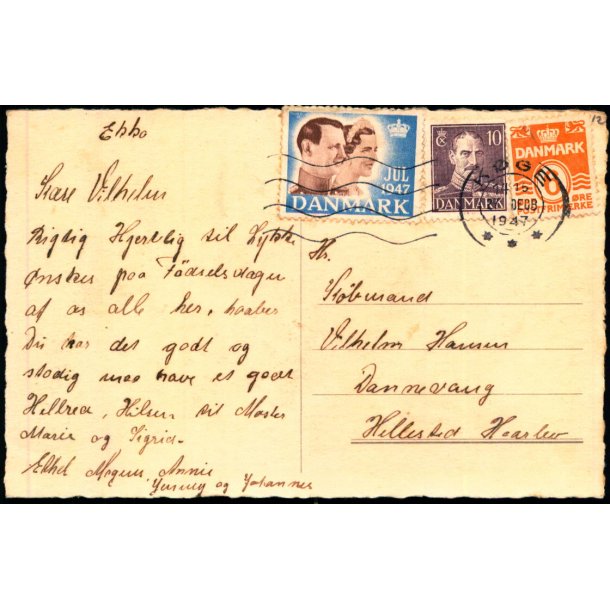 Ebba
Kære Vilhelm
Rigtig Hjertelig til Lykke
Ønsker paa Fødselsdagen
af os alle her, haaber
Du har det godt og
stadig maa have et godt
Helbred, Hilsen til Moster
Marie og Sigrid.
Ethel Mogens, Annie
og Johannes
JUL
1947
DANMARK
10
DANMARK
DANMARK
ØRE
KØGE
15
DECB
1947
12
Hr.
Købmand
Vilhelm Hansen
Dannevang
Hellested Haarlev